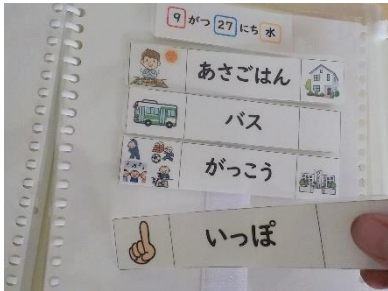 9がつ27にち水
あさごはん
バス
がっこう
いっぽ